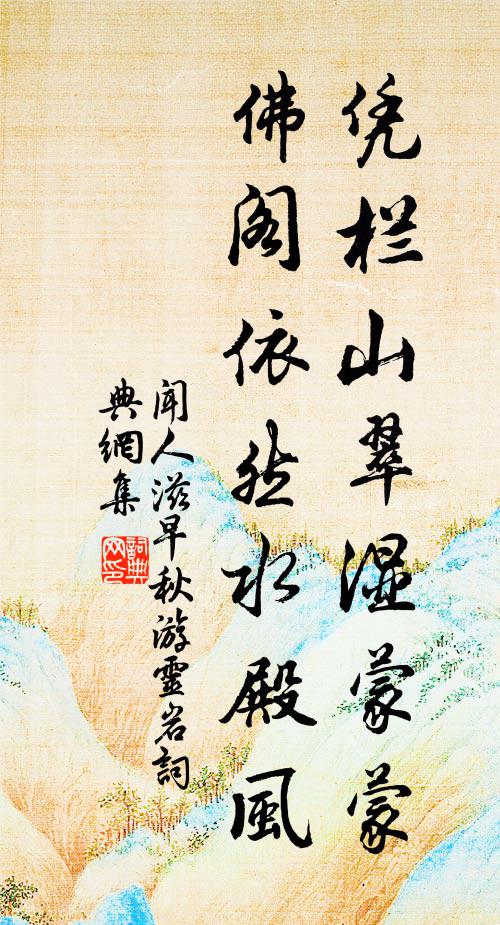 凭栏山翠湿蒙蒙
佛阁依然水殿風
闻人滋早秋游靈岩詞
典網集
詞典
网印